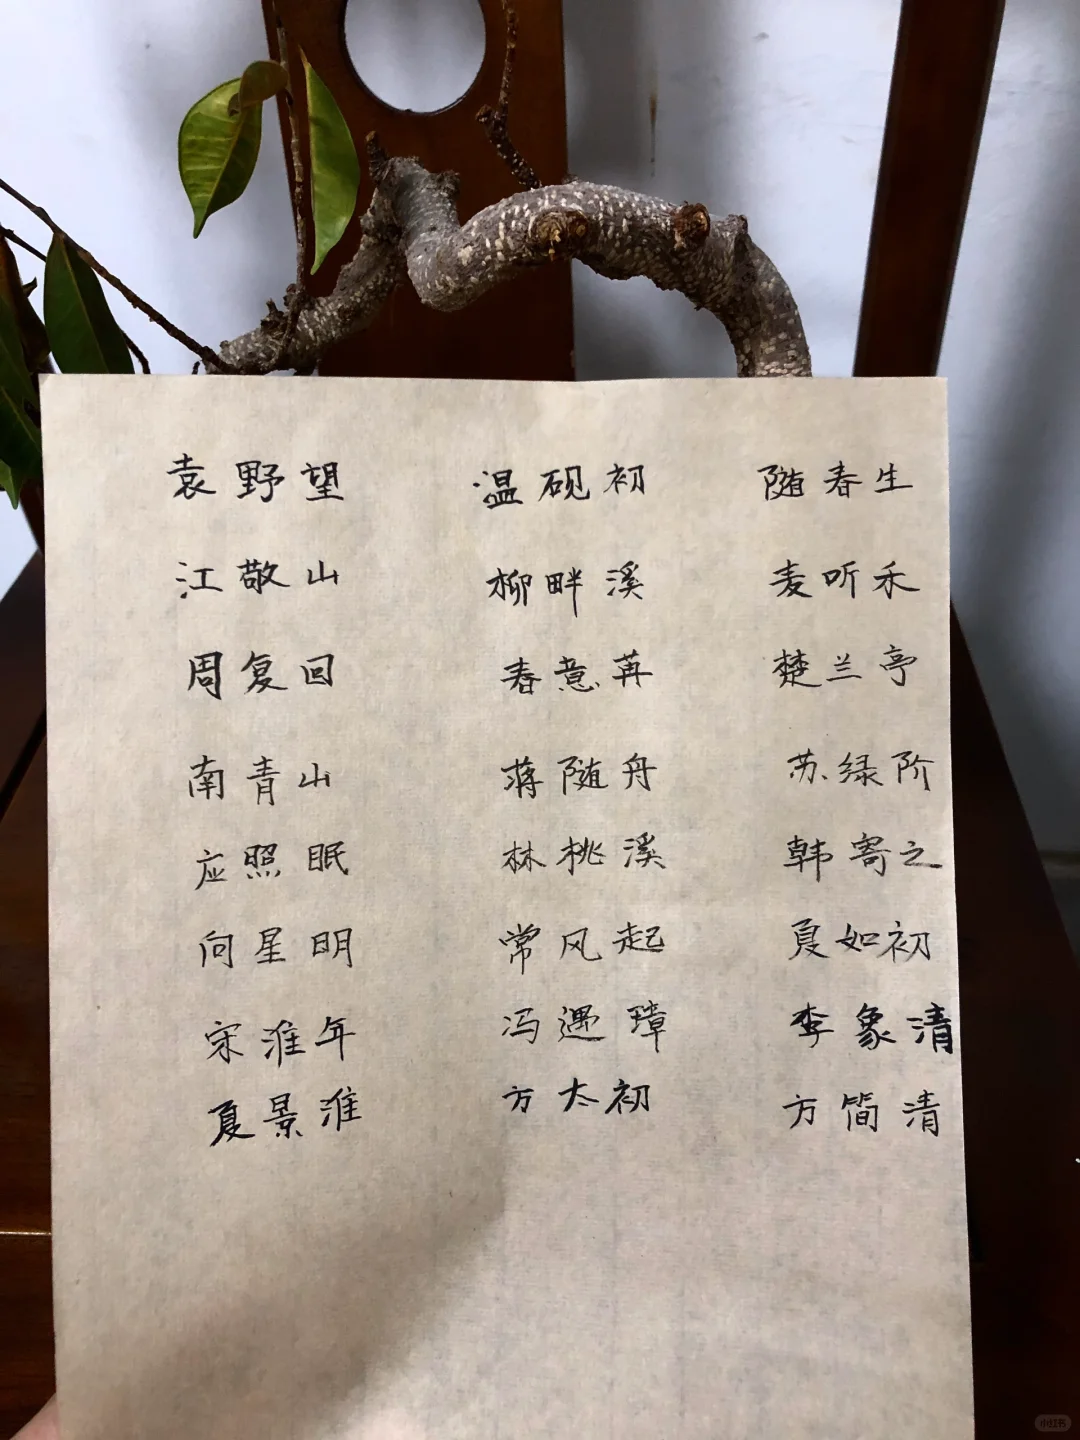 袁野望 温砚初 随春生
江敬山 柳畔溪 麦听禾
周复回 春意苒 楚兰亭
南青山 蒋随舟 苏绿阶
应照眠 林桃溪 韩寄之
向星明 常风起 夏如初
宋淮年 冯遇璋 李象清
夏景淮 方太初 方简清
小红书